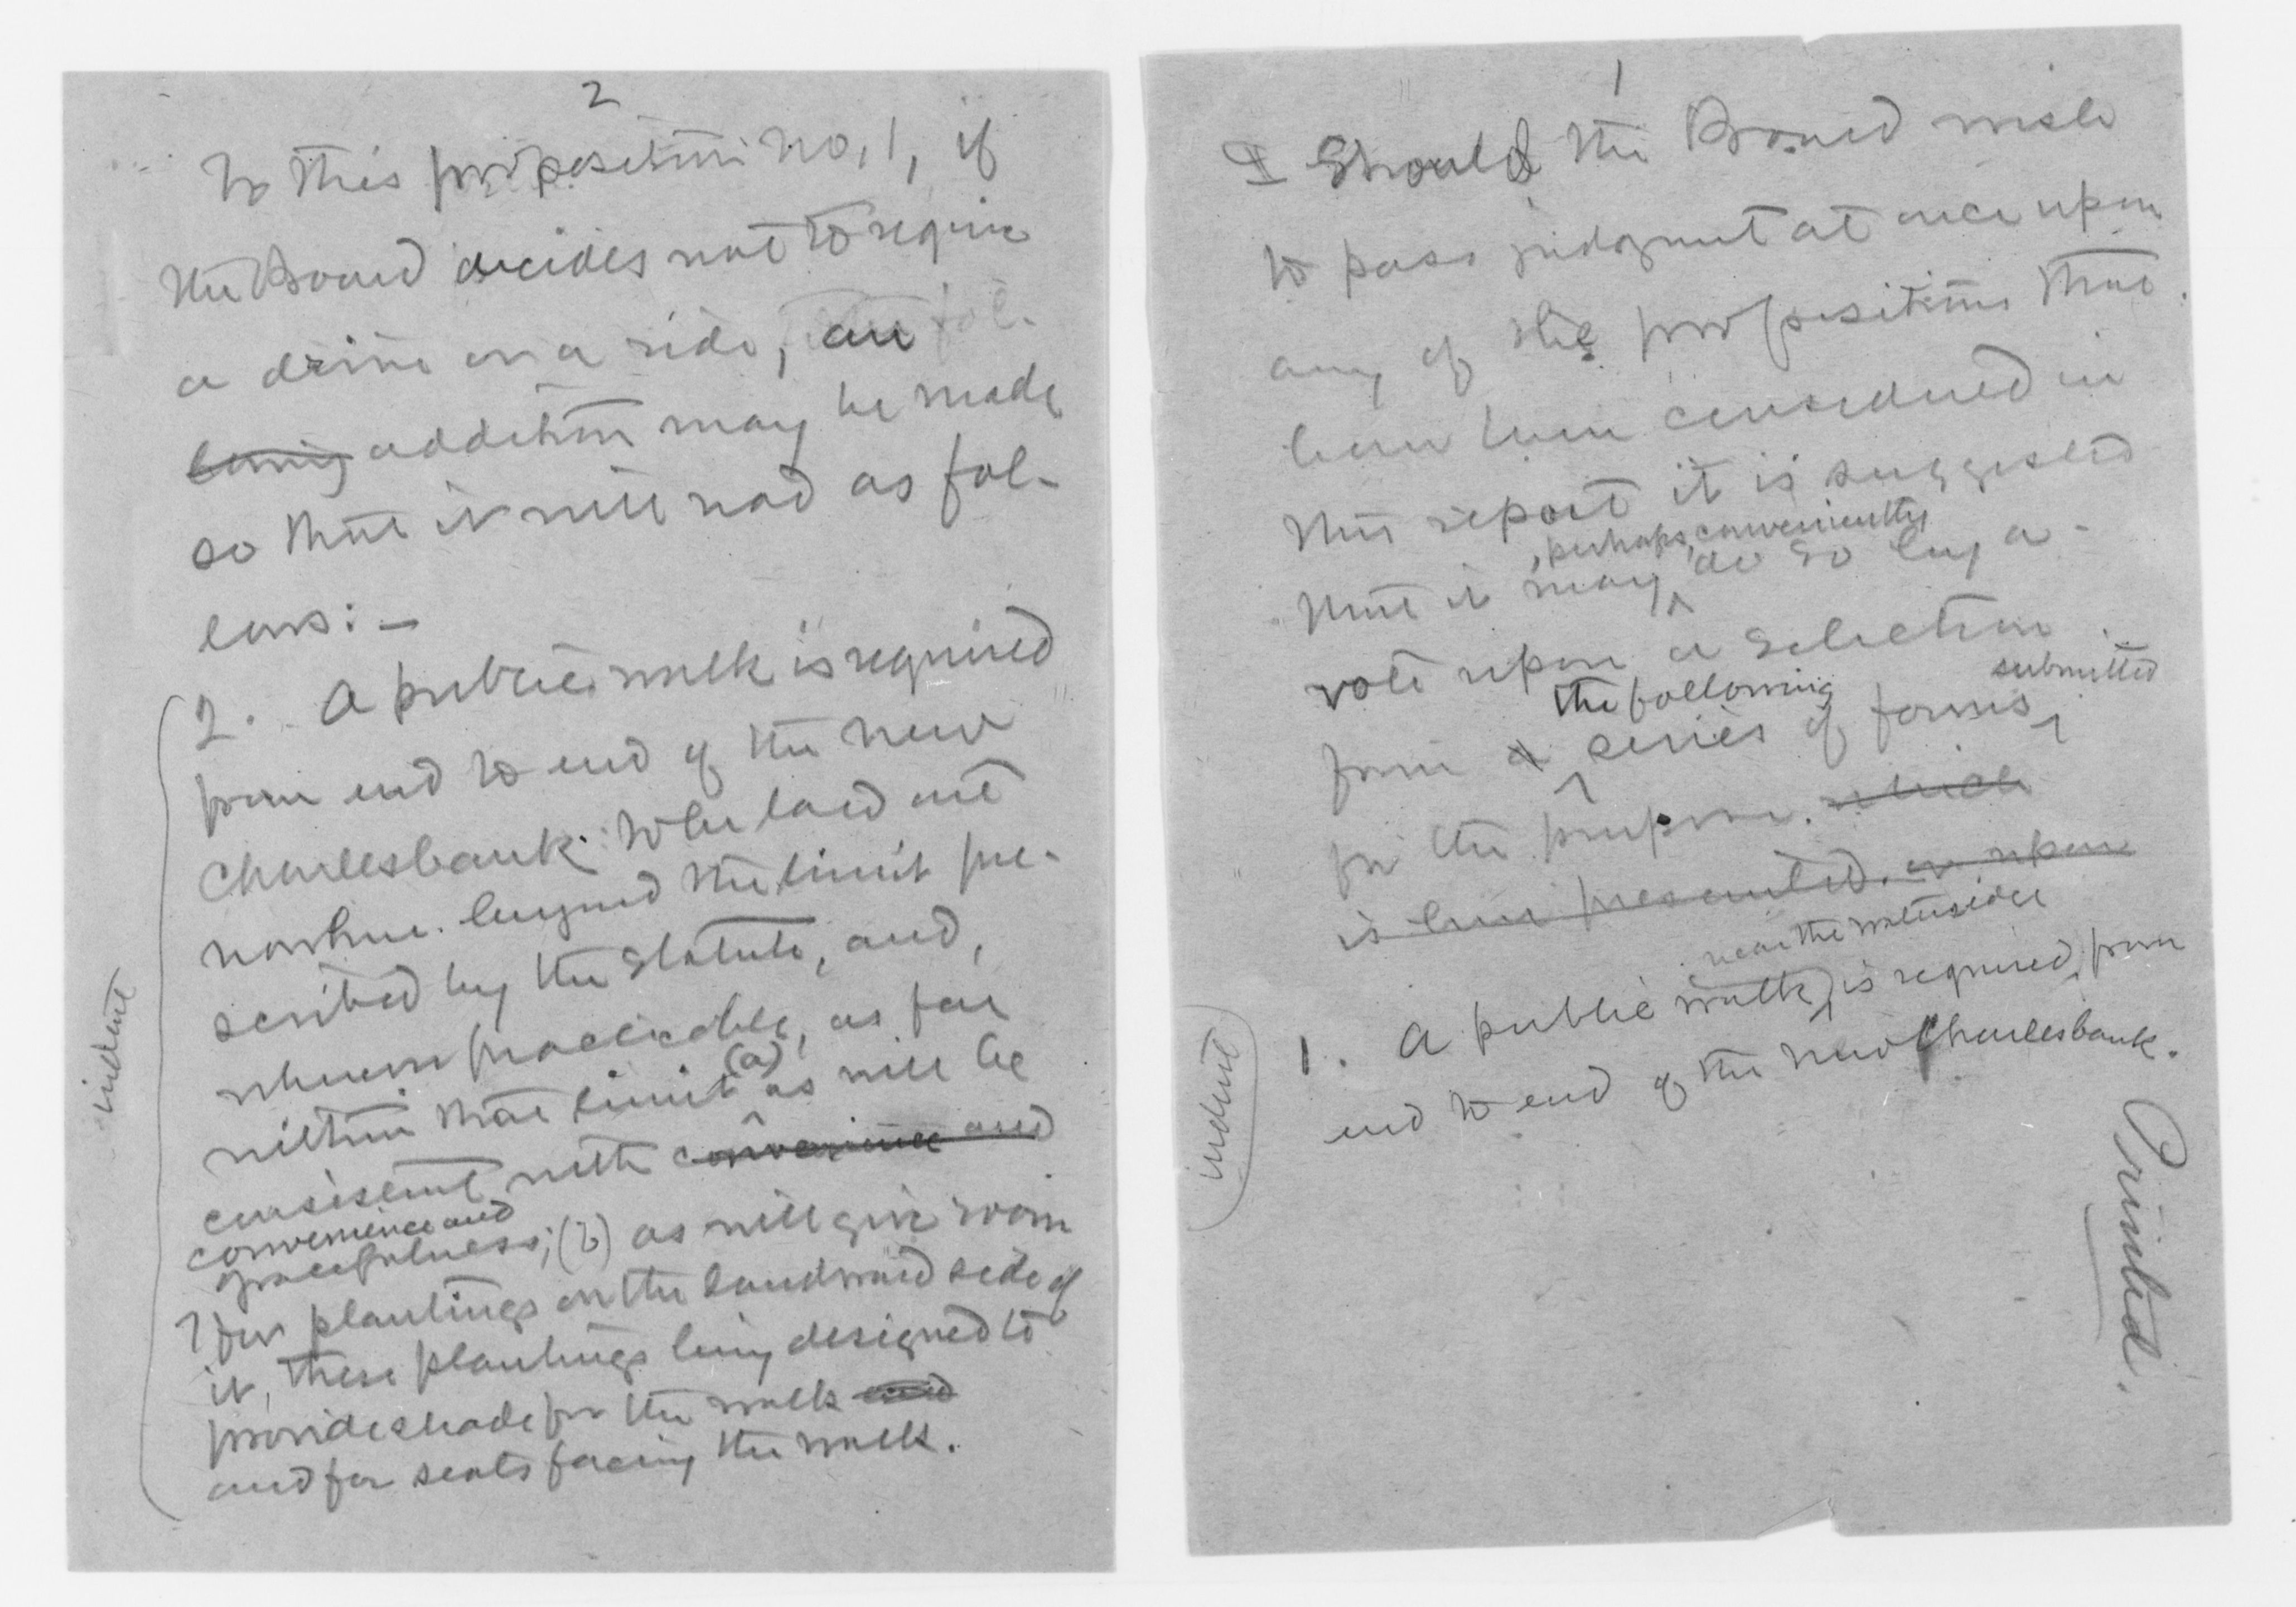 2
To this proposition no. 1, if
the Board decides not to require
a drive or a ride, an fol-
lowing addition may be made
so that it will read as fol-
lows:—
2. A public walk is required
from end to end of the new
Charlesbank. To be laid out
nowhere beyond the limit pre-
scribed by the Statute, and,
where practicable, as far
within that limit (a) as will be
consistent with convenience and
convenience and
gracefulness; (b) as will give room
for plantings on the landward side of
it, these plantings being designed to
provide shade for the walk and
and for seats facing the walk.
indent
1
I Should the Board wish
to pass judgment at once upon
any of the propositions that
have been considered in
this report it is suggested
, perhaps, conveniently
that it may do so by a
vote upon a selection
the following submitted
from a series of forms
for the purpose. which
is here presented. or upon
near the waterside
1. A public walk, is required, from
end to end of the new Charlesbank.
indent
Printed.